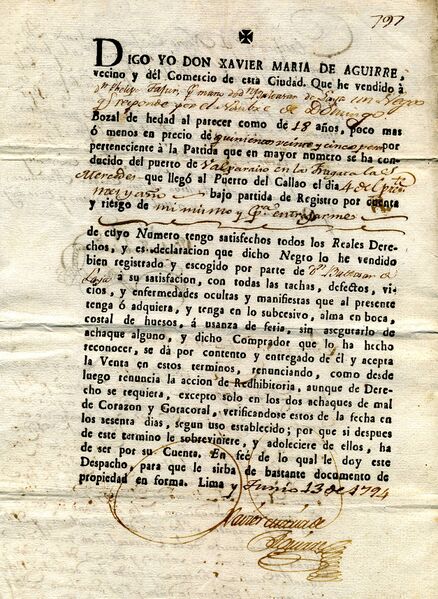 797
DIGO YO DON XAVIER MARIA DE AGUIRRE,
vecino y dél Comercio de esta Ciudad. Que he vendido à
un Negro
que responde por el Nombre de Domingo
Bozal de hedad al parecer como de 18 años, poco mas
ó menos en precio de quinientos veinte y cinco pesos
perteneciente à la Partida que en mayor número se ha con-
ducido del puerto de Valparaiso en la fragata las
Mercedes que llegó al Puerto del Callao el dia 4 del prete
mes y año bajo partida de Registro por cuenta
y riesgo de mi mismo y
de cuyo Numero tengo satisfechos todos los Reales Dere-
chos, y es declaracion que dicho Negro lo he vendido
bien registrado y escogido por parte de
Loya à su satisfacion, con todas las tachas, defectos, vi-
cios, y enfermedades ocultas y manifiestas que al presente
tenga ó adquiera, y tenga en lo subcesivo, alma en boca,
costal de huesos, á usanza de feria, sin asegurarlo de
achaque alguno, y dicho Comprador que lo ha hecho
reconocer, se dà por contento y entregado de él y acepta
la Venta en estos terminos, renunciando, como desde
luego renuncia la accion de Redhibitoria, aunque de Dere-
cho se requiera, excepto solo en los dos achaques de mal
de Corazon y Gotacoral, verificandose estos de la fecha en
los sesenta dias, segun uso establecido; por que si despues
de este termino le sobreviniere, y adoleciere de ellos, ha
de ser por su Cuenta. En feé de lo qual le doy este
Despacho, para que le sirba de bastante documento de
propiedad en forma. Lima y Junio 13 de 1794
Xavier Maria de
Aguirre